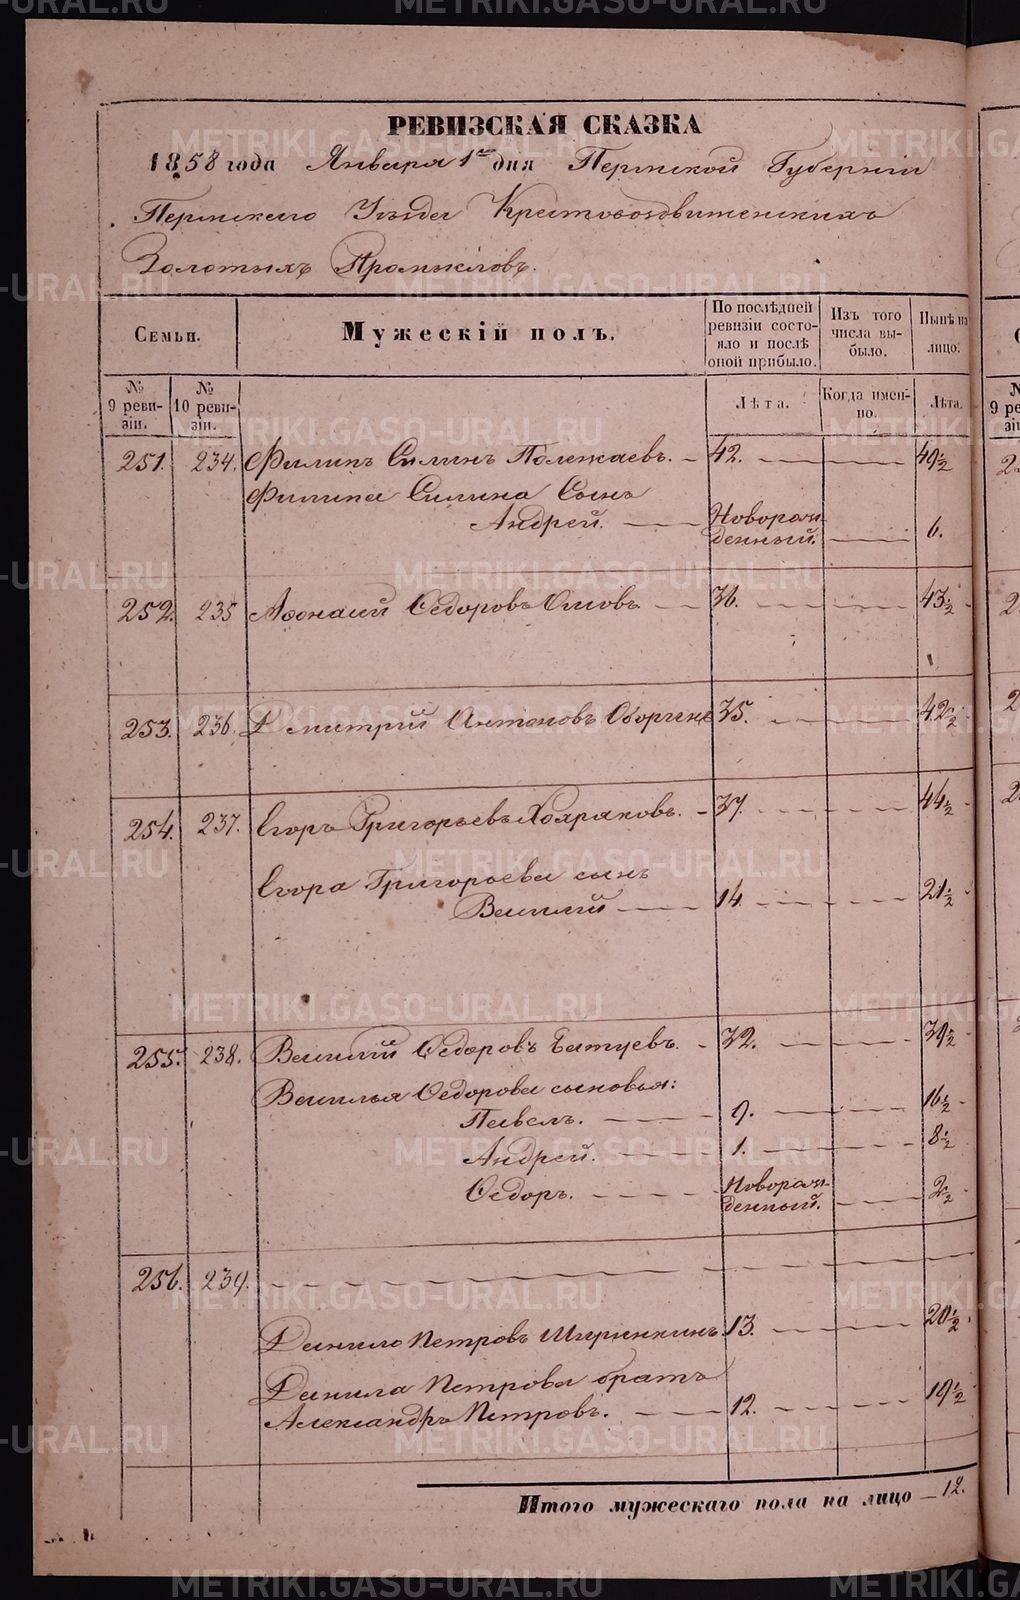 РЕВИЗСКАЯ СКАЗКА
1858 года Января 1го дня Пермской Губернiи
Пермскаго Уѣзда Крестовоздвиженскихъ
Золотыхъ Промысловъ.
Семьи.
Мужескiй полъ.
По послѣдней ревизiи состояло и послѣ оной прибыло.
Изъ того числа выбыло.
Нынѣ на лицо.
№ 9 ревизiи.
№ 10 ревизiи.
Лѣта.
Когда именно.
Лѣта.
251. 234. Филипъ Силинъ Полежаевъ. 42. 49½
Филипа Силина Сынъ
Андрей. Новорожденный. 6.
252. 235 Афонасiй Федоровъ 36. 43½
253. 236. Дмитрiй Антоновъ 35. 42½
254. 237. Егоръ Григорьевъ 37. 44½
Егора Григорьева сынъ
Василiй 14 21½
255. 238. Василiй Федоровъ 32. 39½
Василья Федорова сыновья:
Павелъ. 9. 16½
Андрей. 1. 8½
Федоръ. Новорожденный.
256. 239.
Данило Петровъ Ширинкинъ 13. 20½
Данила Петрова братъ
Александръ Петровъ. 12. 19½
Итого мужескаго пола на лицо 12.
METRIKI.GASO-URAL.RU